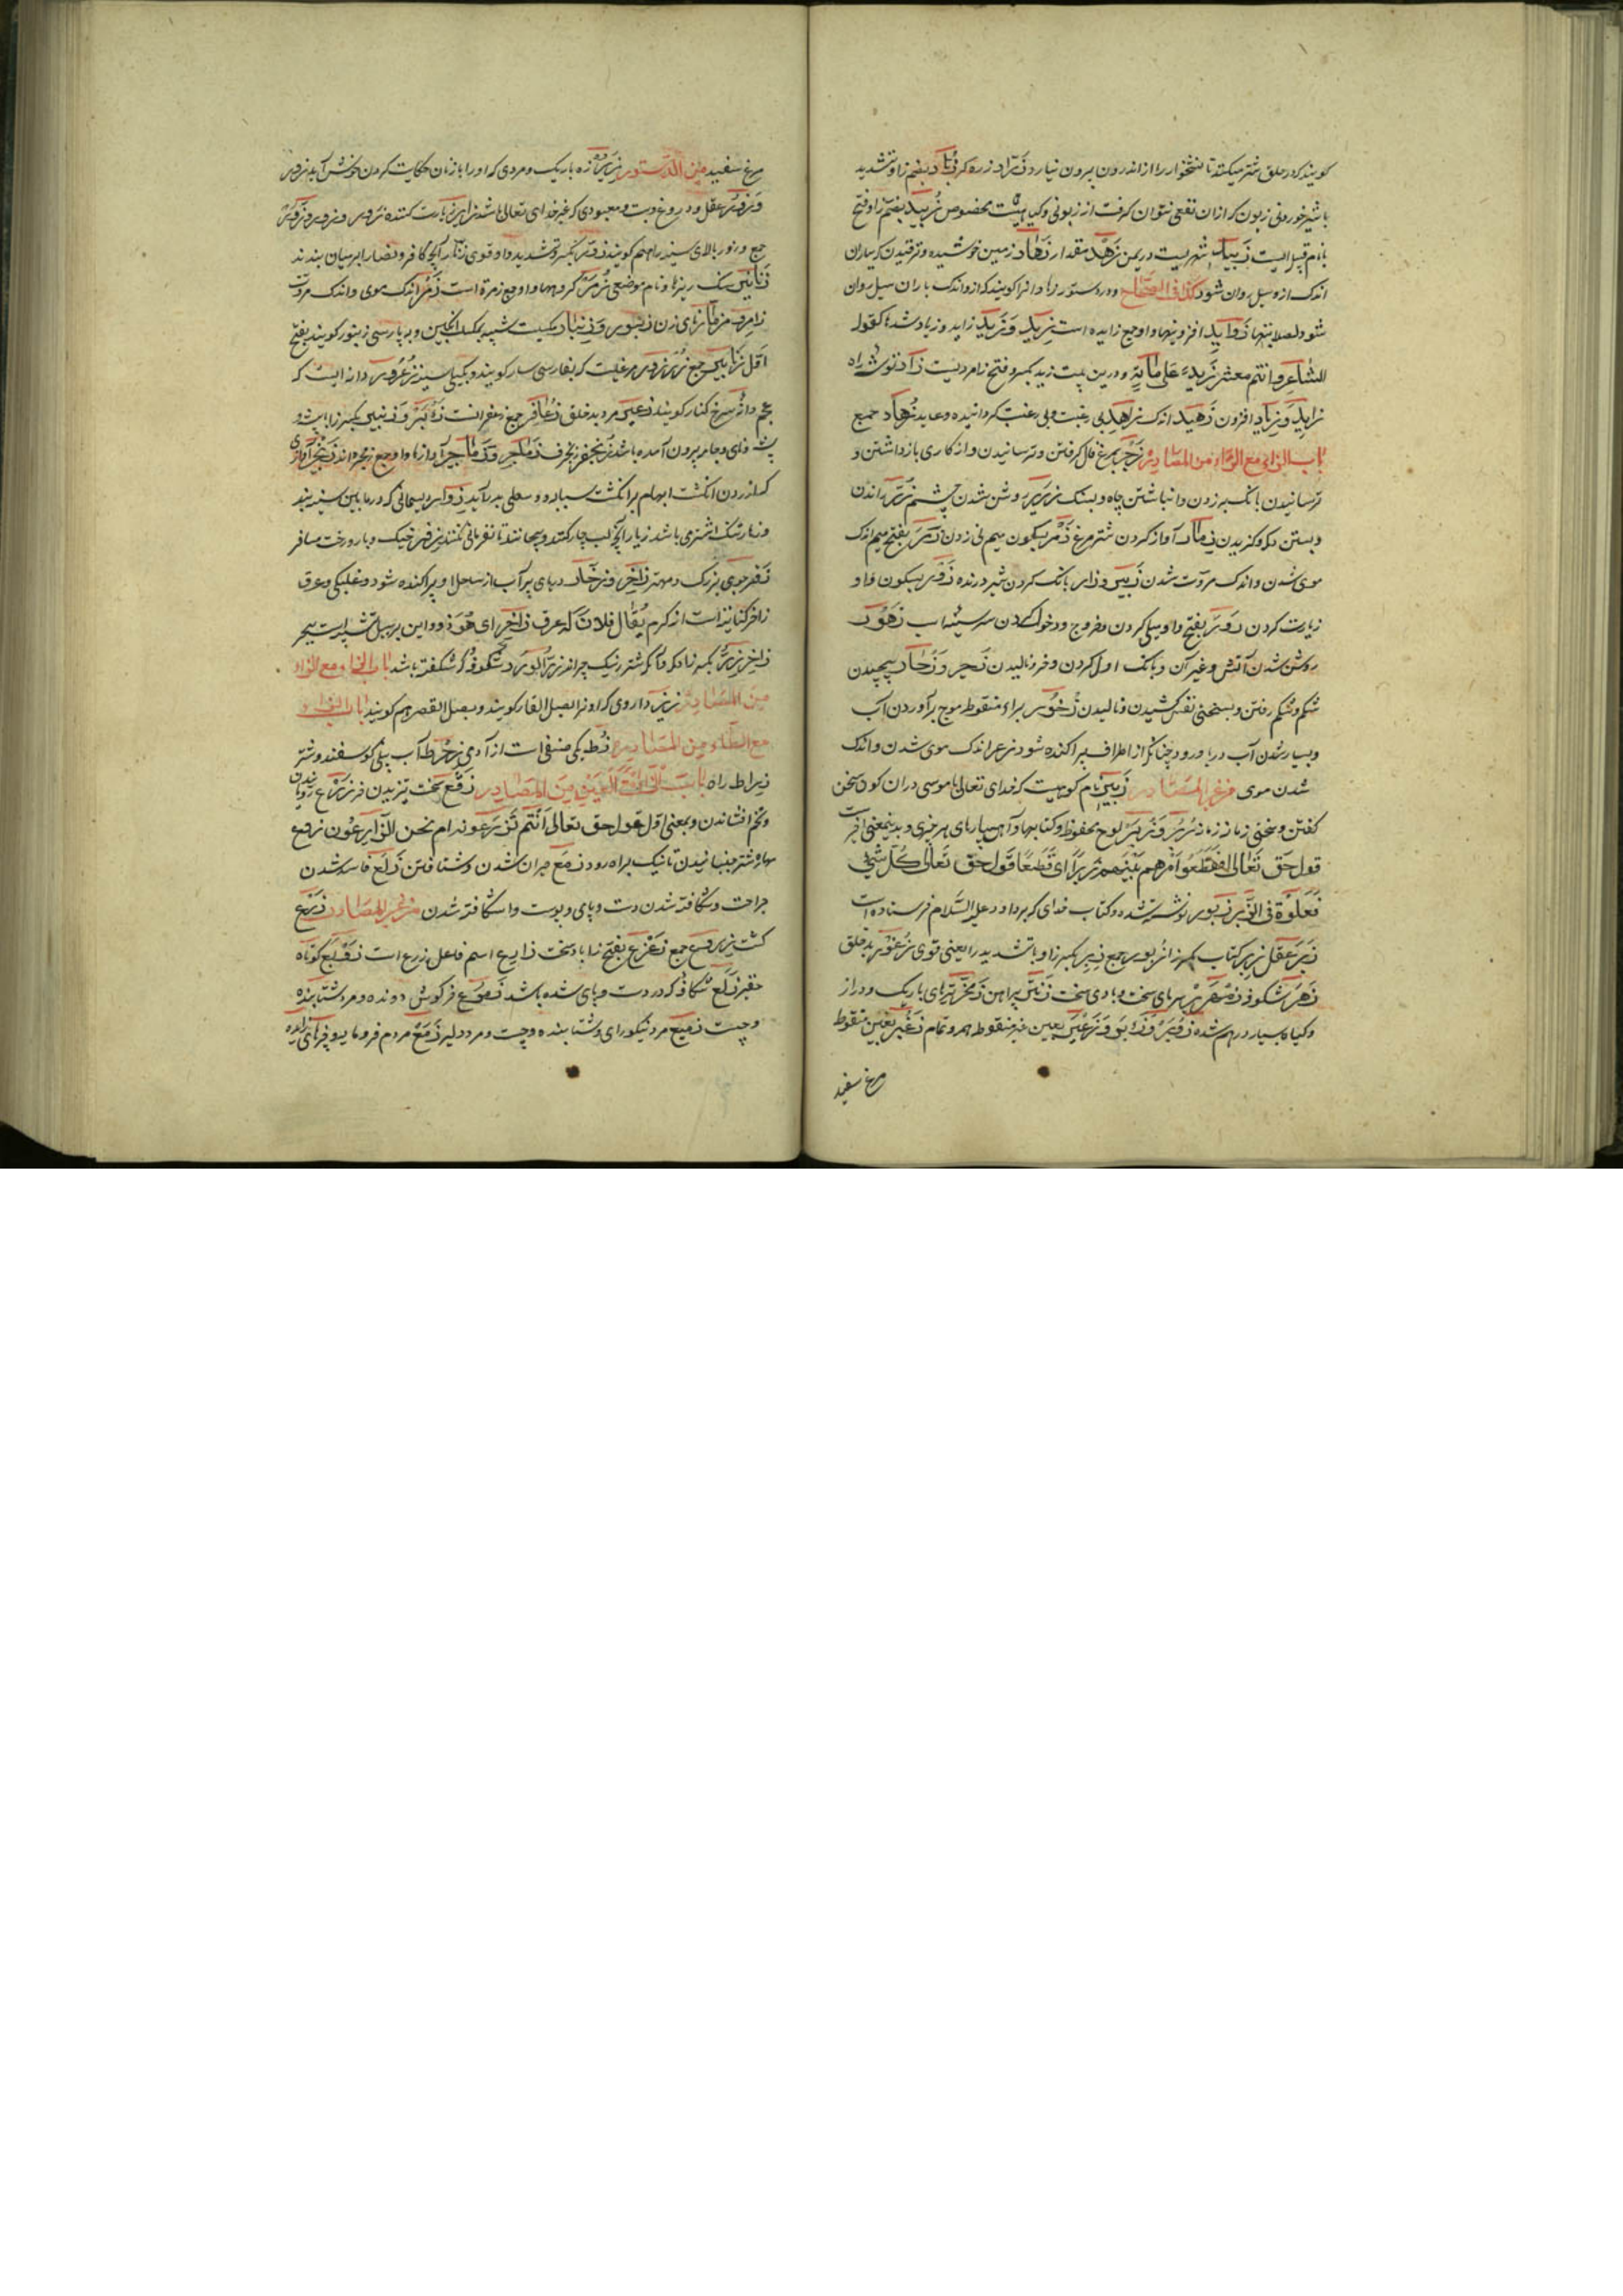 کویند که در حلق شتر میکنند تا نشخوار را از اندرون بیرون نیارد زراد زره کر زباد بضم زا و تشدید
با شیر خوردنی زبون که ازان نفعی نتوان کرفت از زبونی و کیاهیست مخصوص زبید بضم زا و فتح
با نام قبیله ایست زبید شهریست در یمن زهد مقدار زهاد زمین خوشیده و ترقیدن که بباران
اندک ازو سیل روان شود کذا فی الصحاح و در دستور زهاد انرا کویند که از و اندک باران سیل روان
شود لصلابتها زواید افزونیها و او جمع زایده است زید و زید زاید و زیاد شد کقول
الشاعر وانتم معشر زید علی مایة و درین بیت زید بکسر و فتح زا مرویست زاد توشه راه
زاید و زیاد افزون زهید اندک زاهد بی رغبت و بی رغبت کردانیده و عابد زهاد جمع
باب الزای مع الراء من المصادر زجر بمرغ فال کرفتن و ترسانیدن و از کاری بازداشتن و
ترسانیدن بانک بر زدن و انباشتن چاه و بسنک زریر روشن شدن چشم زر راندن
و بستن دکو و کزیدن زمار آواز کردن شتر مرغ زمر بسکون میم نی زدن زمر بفتح میم اندک
موی شدن و اندک مروت شدن زیر و زار بانک کردن شیر درنده زور بسکون واو
زیارت کردن زور بفتح واو میلی کردن و خروج و دخول کردن سر سینه اسب زهور
روشن شدن آتش و غیر آن و بانک اول کردن و خر و نالیدن زحیر و زحار پیچیدن
شکم و شکم رفتن و بسختی نفس کشیدن و نالیدن زخور براء منقوط موج برآوردن آب
و بسیار شدن آب دریا و رود چنانکه از اطراف پراکنده شود زعر اندک موی شدن و اندک
شدن موی من غیر المصادر زبیر نام کوهیست که خدای تعالی با موسی دران کوه سخن
کفتن و سختی زمانه زبر و زبر لوح محفوظ و کتابها و آهن پارهای هر چیزی و بدینمعنی است
قول حق تعالی فتقطعوا امرهم بینهم زبرا ای قطعا قول حق تعالی کل شیء
فعلوه فی الزبر زبور نوشته شده و کتاب خدای که بر داود علیه السلام فرستاده است
زبر عقل زبر کتاب بکسر زا زبور جمع زبر بکسر زا و با تشدید را یعنی قوی زعور بد خلق
زهر شکوفه زمهریر سرمای سخت و بادی سخت زر پیراهن زمخر تیرهای باریک و دراز
و کیاه بسیار درهم شده زوبر و زابر و زعبر بعین غیر منقوط همه و تمام زغبر بغین منقوط
مرغ سفید
مرغ سفید من الدستور زیر زه باریک و مردی که او را با زنان حکایت کردن خوش آید زور
و زور عقل و دروغ و بت و معبودی که غیر خدای تعالی باشد زایر زیارت کننده زور و زور
جمع و زور بالای سینه را هم کویند زور بکسر و تشدید واو قوی زنار آنچه کافر و نصارا بر میان بندند
زنانیر سنک ریزها و نام موضعی زمر کروهها و او جمع زمرة است زمر اندک موی و اندک مروت
زامر مزمار نای زن زنبور و زنبار مکسیست شبیه بمکس انکبین و بپارسی زنبور کویند بفتح
اول زنابیر جمع زرزور مرغیست که بفارسی سار کویند و بکیلی سینه زعرور دانه ایست که
بعجم دانه سرخ کنار کویند زعر مرد بد خلق زعافر جمع زعفرانست زوبر و زنبیر بکسر زا
پشت فای و جامه بیرون آمده باشد زنجفر شنجرف زماجر و زماجیر آوازها و او جمع زمجره اند زنجر آوازی
که از زدن انکشت ابهام بر انکشت سبابه و وسطی برآید زوار ریسمانی که در میان سینه بند
و زیار تنک اشتری باشد زیار آنچه لب چارکنند و بپیچانند تا نفرمانی نکند زفر خیک و بار و رخت مسافر
زفر جوی بزرک و مهتر زاخر و زخار دریای پر آب از ساحل او پراکنده شود و غلبکی و عرق
زاخر کنایتست از کرم یقال فلان له عرق زاخر ای هو ذو و این بر سبیل تشبیه است ببحر
زاخر زر بکسر زا دکمه و آنکه شتر را نیک چراند زر الورد شکوفه که شکفته باشد باب الزاء مع الزاء
من المصادر زیز داروی که او را بصل الفار کویند و بصل القصر هم کویند باب الزاء
مع الطاء من المصادر زط یکی صنفی است از آدمی زخرط آب بینی کوسفند و شتر
زیراط راه باب الزاء مع العین من المصادر زقع سخت تیزیدن خر زرع رویانیدن
و تخم افشاندن و بمعنی اول قول حق تعالی أانتم تزرعونه ام نحن الزارعون زوع
مهار شتر جنبانیدن تا نیک براه رود زمع حیران شدن و شتافتن زلع فاسد شدن
جراحت و شکافته شدن دست و پای و پوست و اشکافته شدن من غیر المصادر زرع
کشت زروع جمع زعزع بفتح زا باد سخت زارع اسم فاعل زرع است زوبع کوتاه
حقیر زلع شکافی که در دست و پای شده باشد زموع خرکوش دونده و مرد شتابنده
و چست زمیع مرد نیکو رای و شتابنده و چست و مرد دلیر زمع مردم فرومایه و فرهای زایده